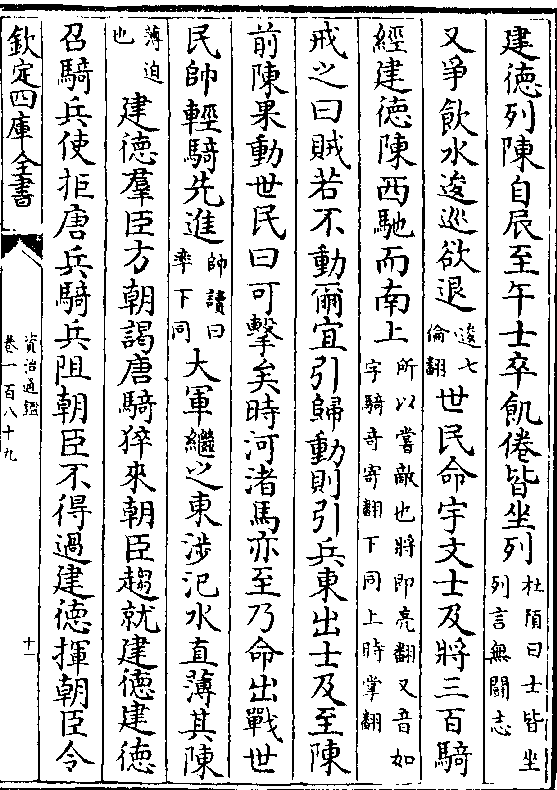 建徳列陳自辰至午士卒飢倦皆坐列杜預曰士皆坐列言無鬭志
又爭飲水逡巡欲退逡七倫翻世民命宇文士及將三百騎
經建徳陳西馳而南上所以嘗敵也將即亮翻又音如字騎奇寄翻下同上時掌翻
戒之曰賊若不動爾宜引歸動則引兵東出士及至陳
前陳果動世民曰可擊矣時河渚馬亦至乃命出戰世
民帥輕騎先進帥讀曰率下同大軍繼之東涉汜水直薄其陳
薄迫也建徳羣臣方朝謁唐騎猝來朝臣趨就建徳建徳
召騎兵使拒唐兵騎兵阻朝臣不得過建徳揮朝臣令
欽定四庫全書
資治通鑑
卷一百八十九
十一